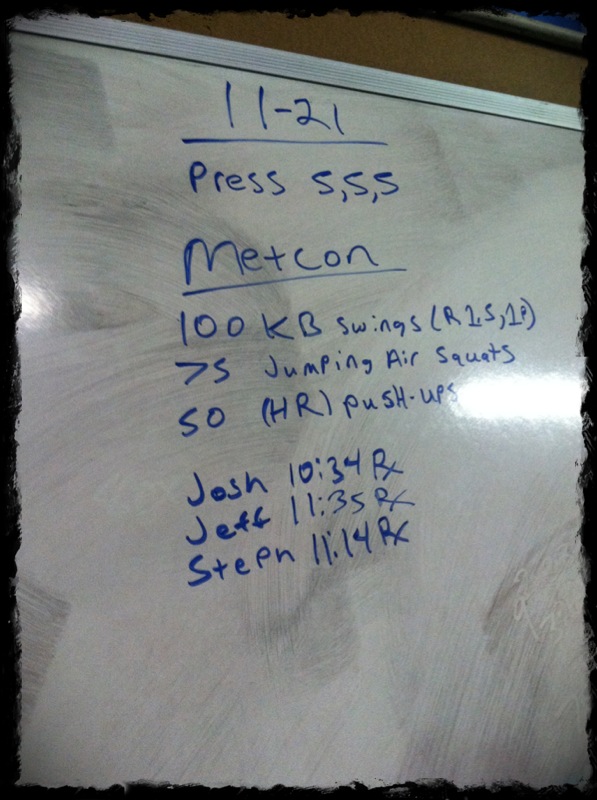 11-21
Press 5,5,5
Metcon
100 KB Swings (R 1.5, 1P)
75 Jumping Air Squats
50 (HR) PUSH-UPS
Josh 10:34 Rx
Jeff 11:35 Rx
Steph 11:14 Rx